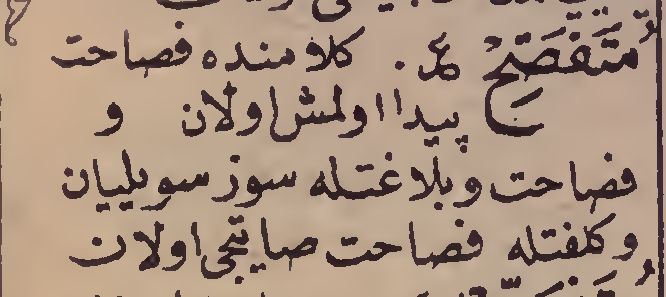 مُتَفَصِّحْ ع. كلامنده فصاحت
پیدا اولمش اولان و
فصاحت و بلاغتله سوز سویلیان
و كلفتله فصاحت صاتیجی اولان